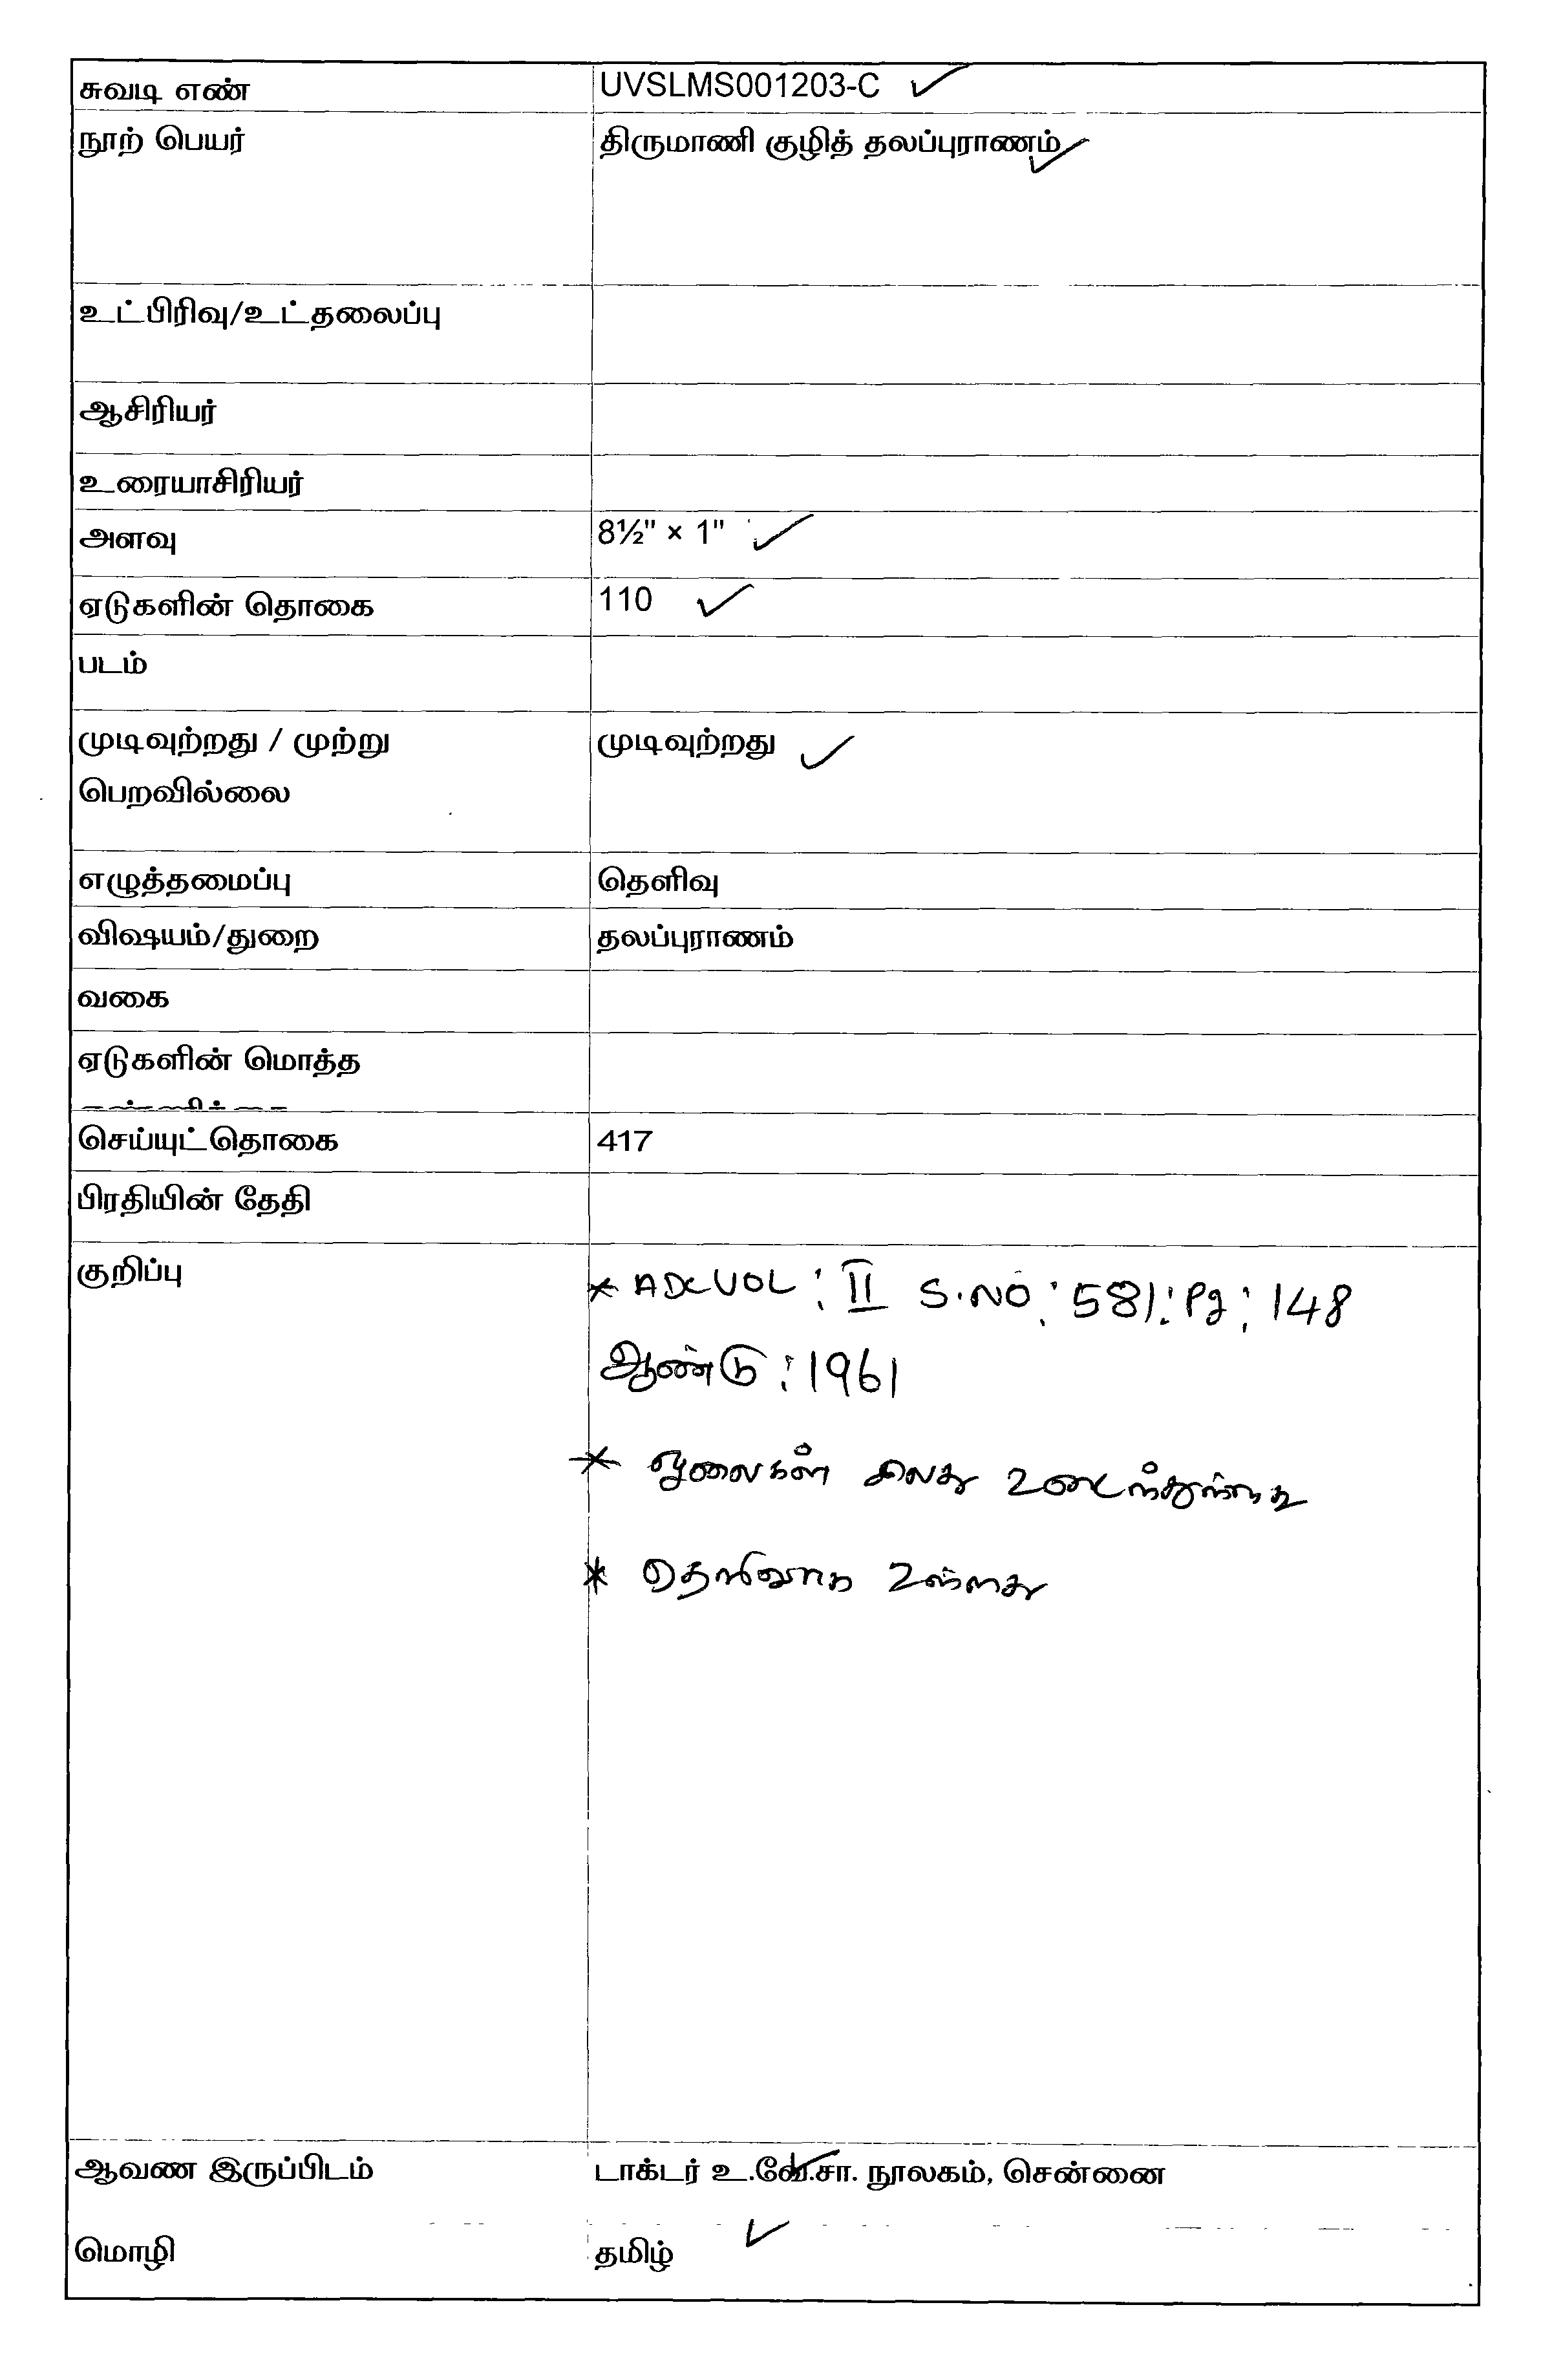 சுவடி எண் UVSLMS001203-C
நூற் பெயர் திருமாணி குழித் தலப்புராணம்
உட்பிரிவு/உட்தலைப்பு
ஆசிரியர்
உரையாசிரியர்
அளவு 8½" × 1"
ஏடுகளின் தொகை 110
படம்
முடிவுற்றது / முற்று முடிவுற்றது
பெறவில்லை
எழுத்தமைப்பு தெளிவு
விஷயம்/துறை தலப்புராணம்
வகை
ஏடுகளின் மொத்த
செய்யுட்தொகை 417
பிரதியின் தேதி
குறிப்பு * ADC VOL : II S.NO : 581 : Pg : 148
ஆண்டு : 1961
* ஓலைகள் சிலது
* தெளிவாக உள்ளது
ஆவண இருப்பிடம் டாக்டர் உ.வே.சா. நூலகம், சென்னை
மொழி தமிழ்